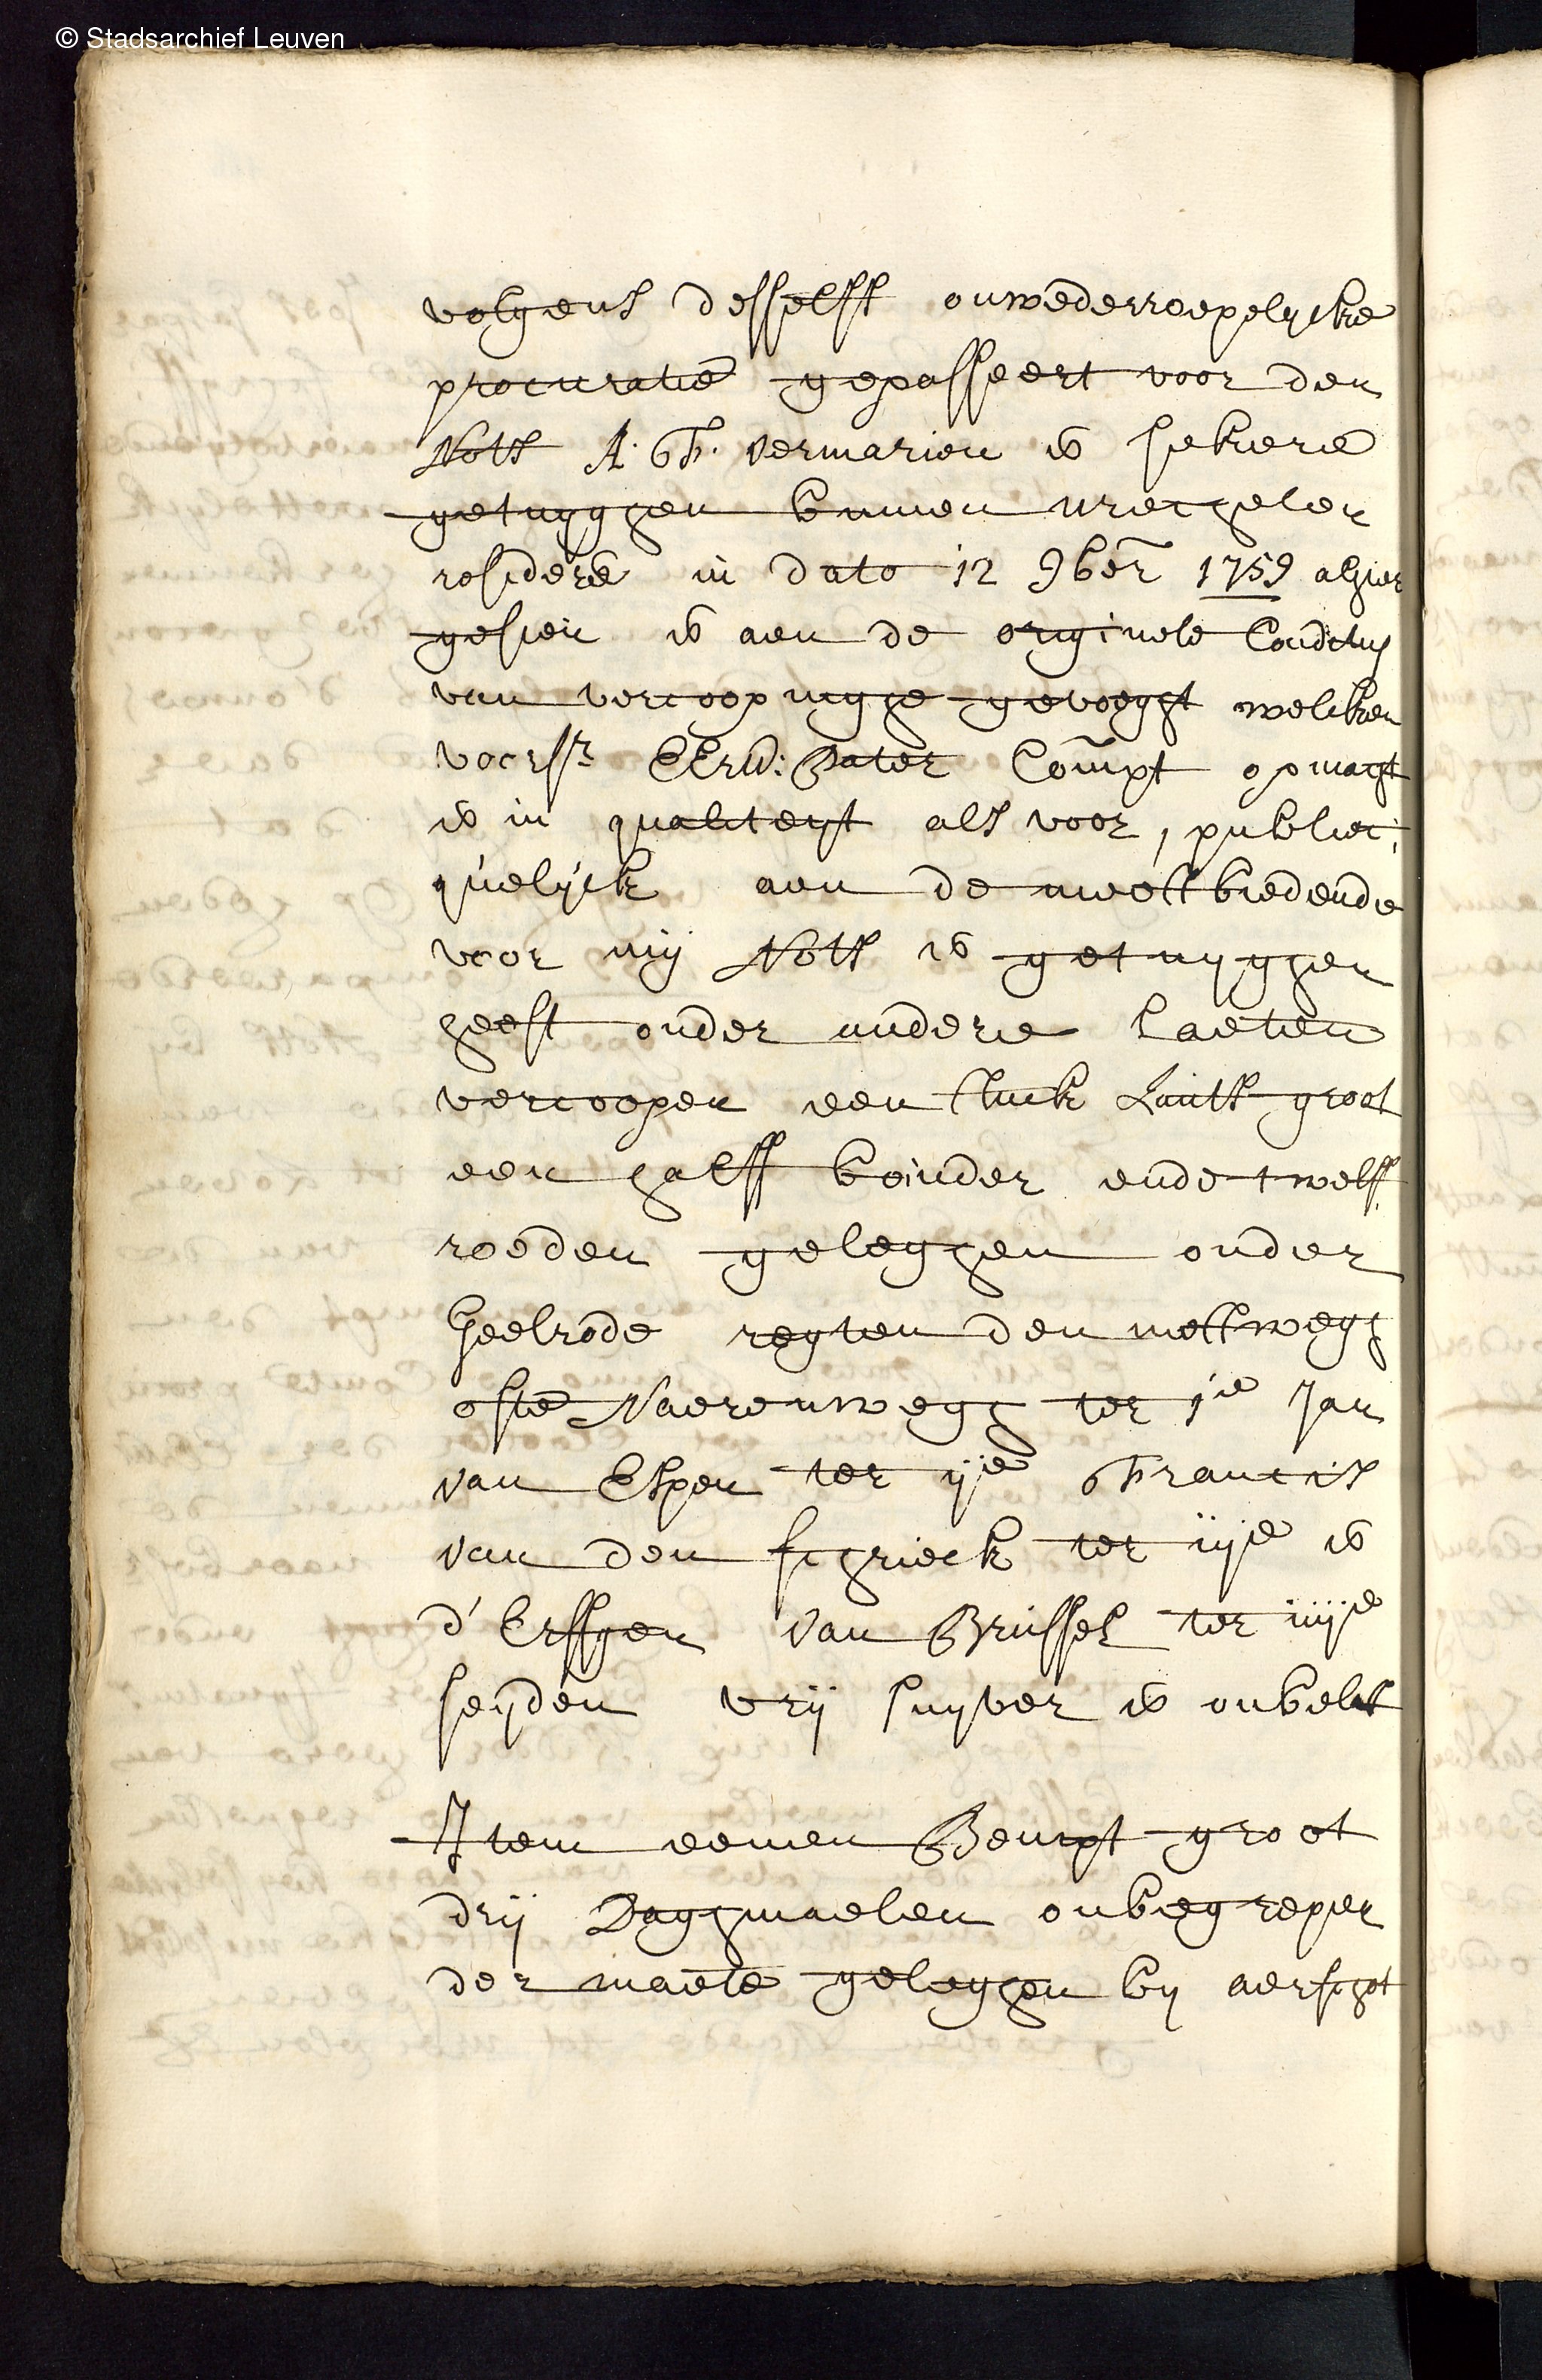 © Stadsarchief Leuven
volgens desselfs onwederroepelycke
procuratie gepasseert voor den
Nots A. F. Vermarien & sekere
getuyghen binnen Mechelen
resideren in dato 12 9ber 1759 alhier
gesien & aen de originele Conditien
van vercoopinghe gevoeght welcken
voorsr Eerw: Pater Compt opmaght
& in qualiteyt als voor, publiec:
quelyck aen de meestbiedende
voor mij Nots & getuyghen
heeft onder andere laeten
vercoopen een stuck Landts groot
een halff boinder ende twelff
roeden geleghen onder
Gelrode regten den mettwegh
ofte Naerenwegh ter 1e Jan
van Espen ter ije Francis
van den schrieck ter iije &
d'Erffgen Van Brussel ter iiije
seyden vrij suyver & onbelast
Item eenen Bempt groot
drij Daghmaelen onbegrepen
der maete geleghen by aerschot